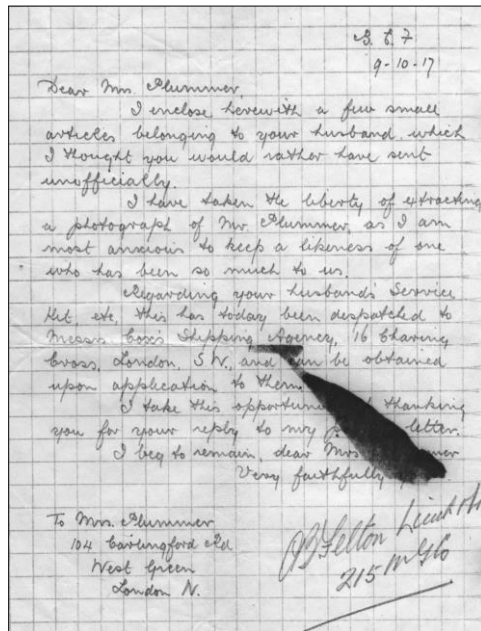 B. E. F
9-10-17
Dear Mrs. Plummer,
I enclose herewith a few small
articles belonging to your husband which
I thought you would rather have sent
unofficially.
I have taken the liberty of extracting
a photograph of Mr. Plummer, as I am
most anxious to keep a likeness of one
who has been so much to us.
Regarding your husband's Service
Kit, etc, this has today been despatched to
Messrs. Cox's Shipping Agency, 16 Charing
Cross, London, S.W., and can be obtained
upon application to them.
I take this thanking
you for your reply to my letter.
I beg to remain, dear Mrs.
Very faithfully
To Mrs. Plummer
104 Carlingford Rd
West Green
London N.
Felton Lieut
215 M G Co